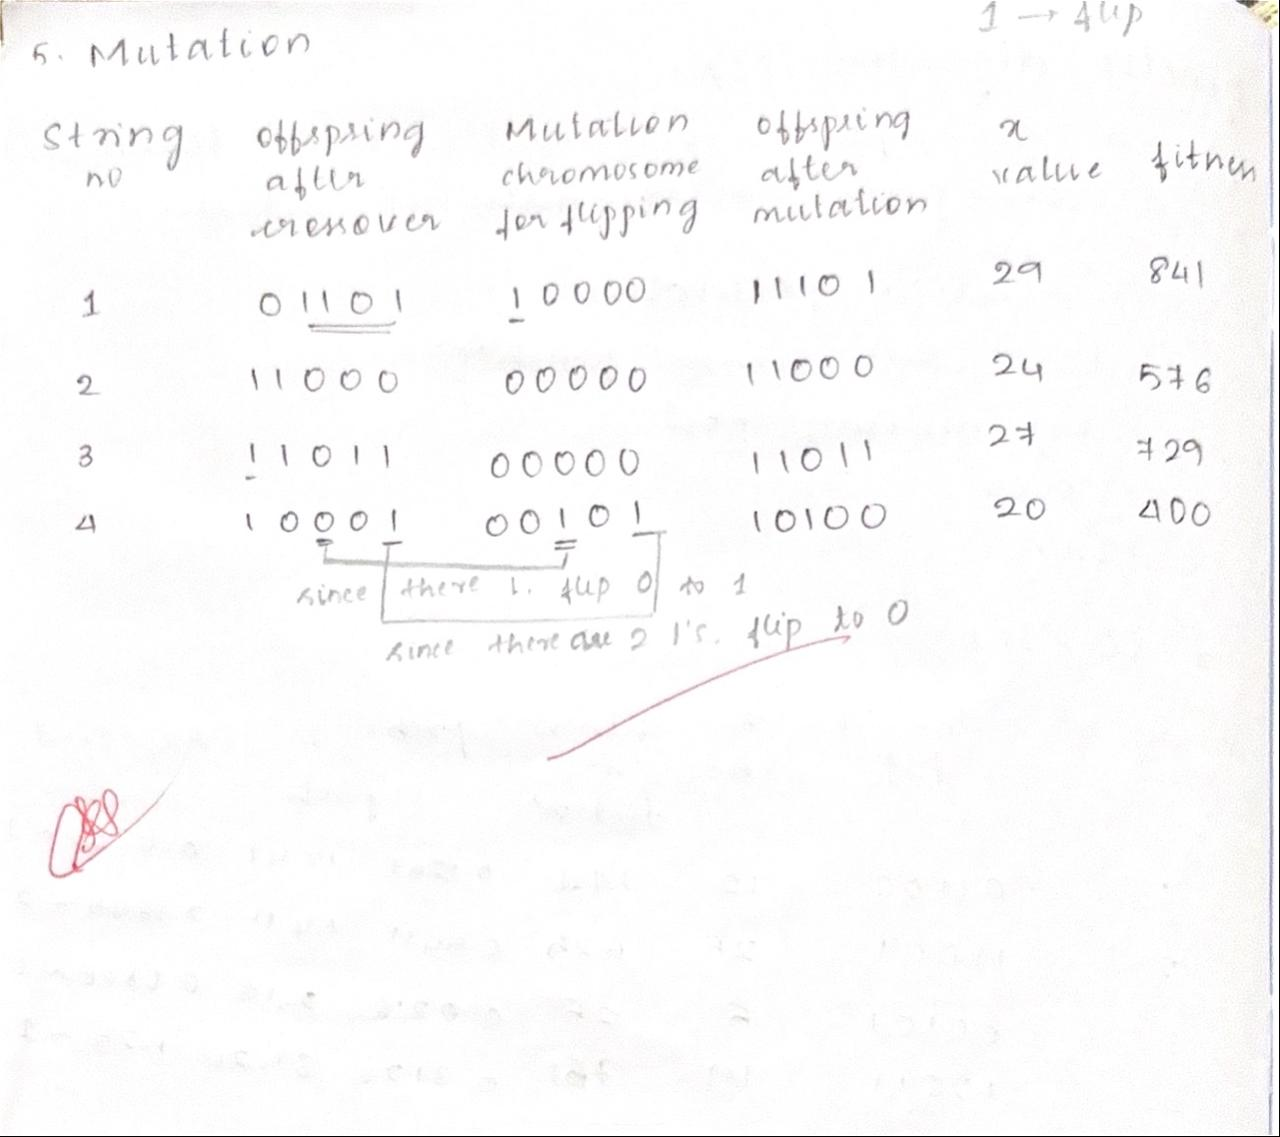 1 → flip
5. Mutation
String no offspring after crossover Mutation chromosome for flipping offspring after mutation x value fitness
1 01101 10000 11101 29 841
2 11000 00000 11000 24 576
3 11011 00000 11011 27 729
4 10001 00101 10100 20 400
since there 1. flip 0 to 1
since there are 2 1's. flip to 0